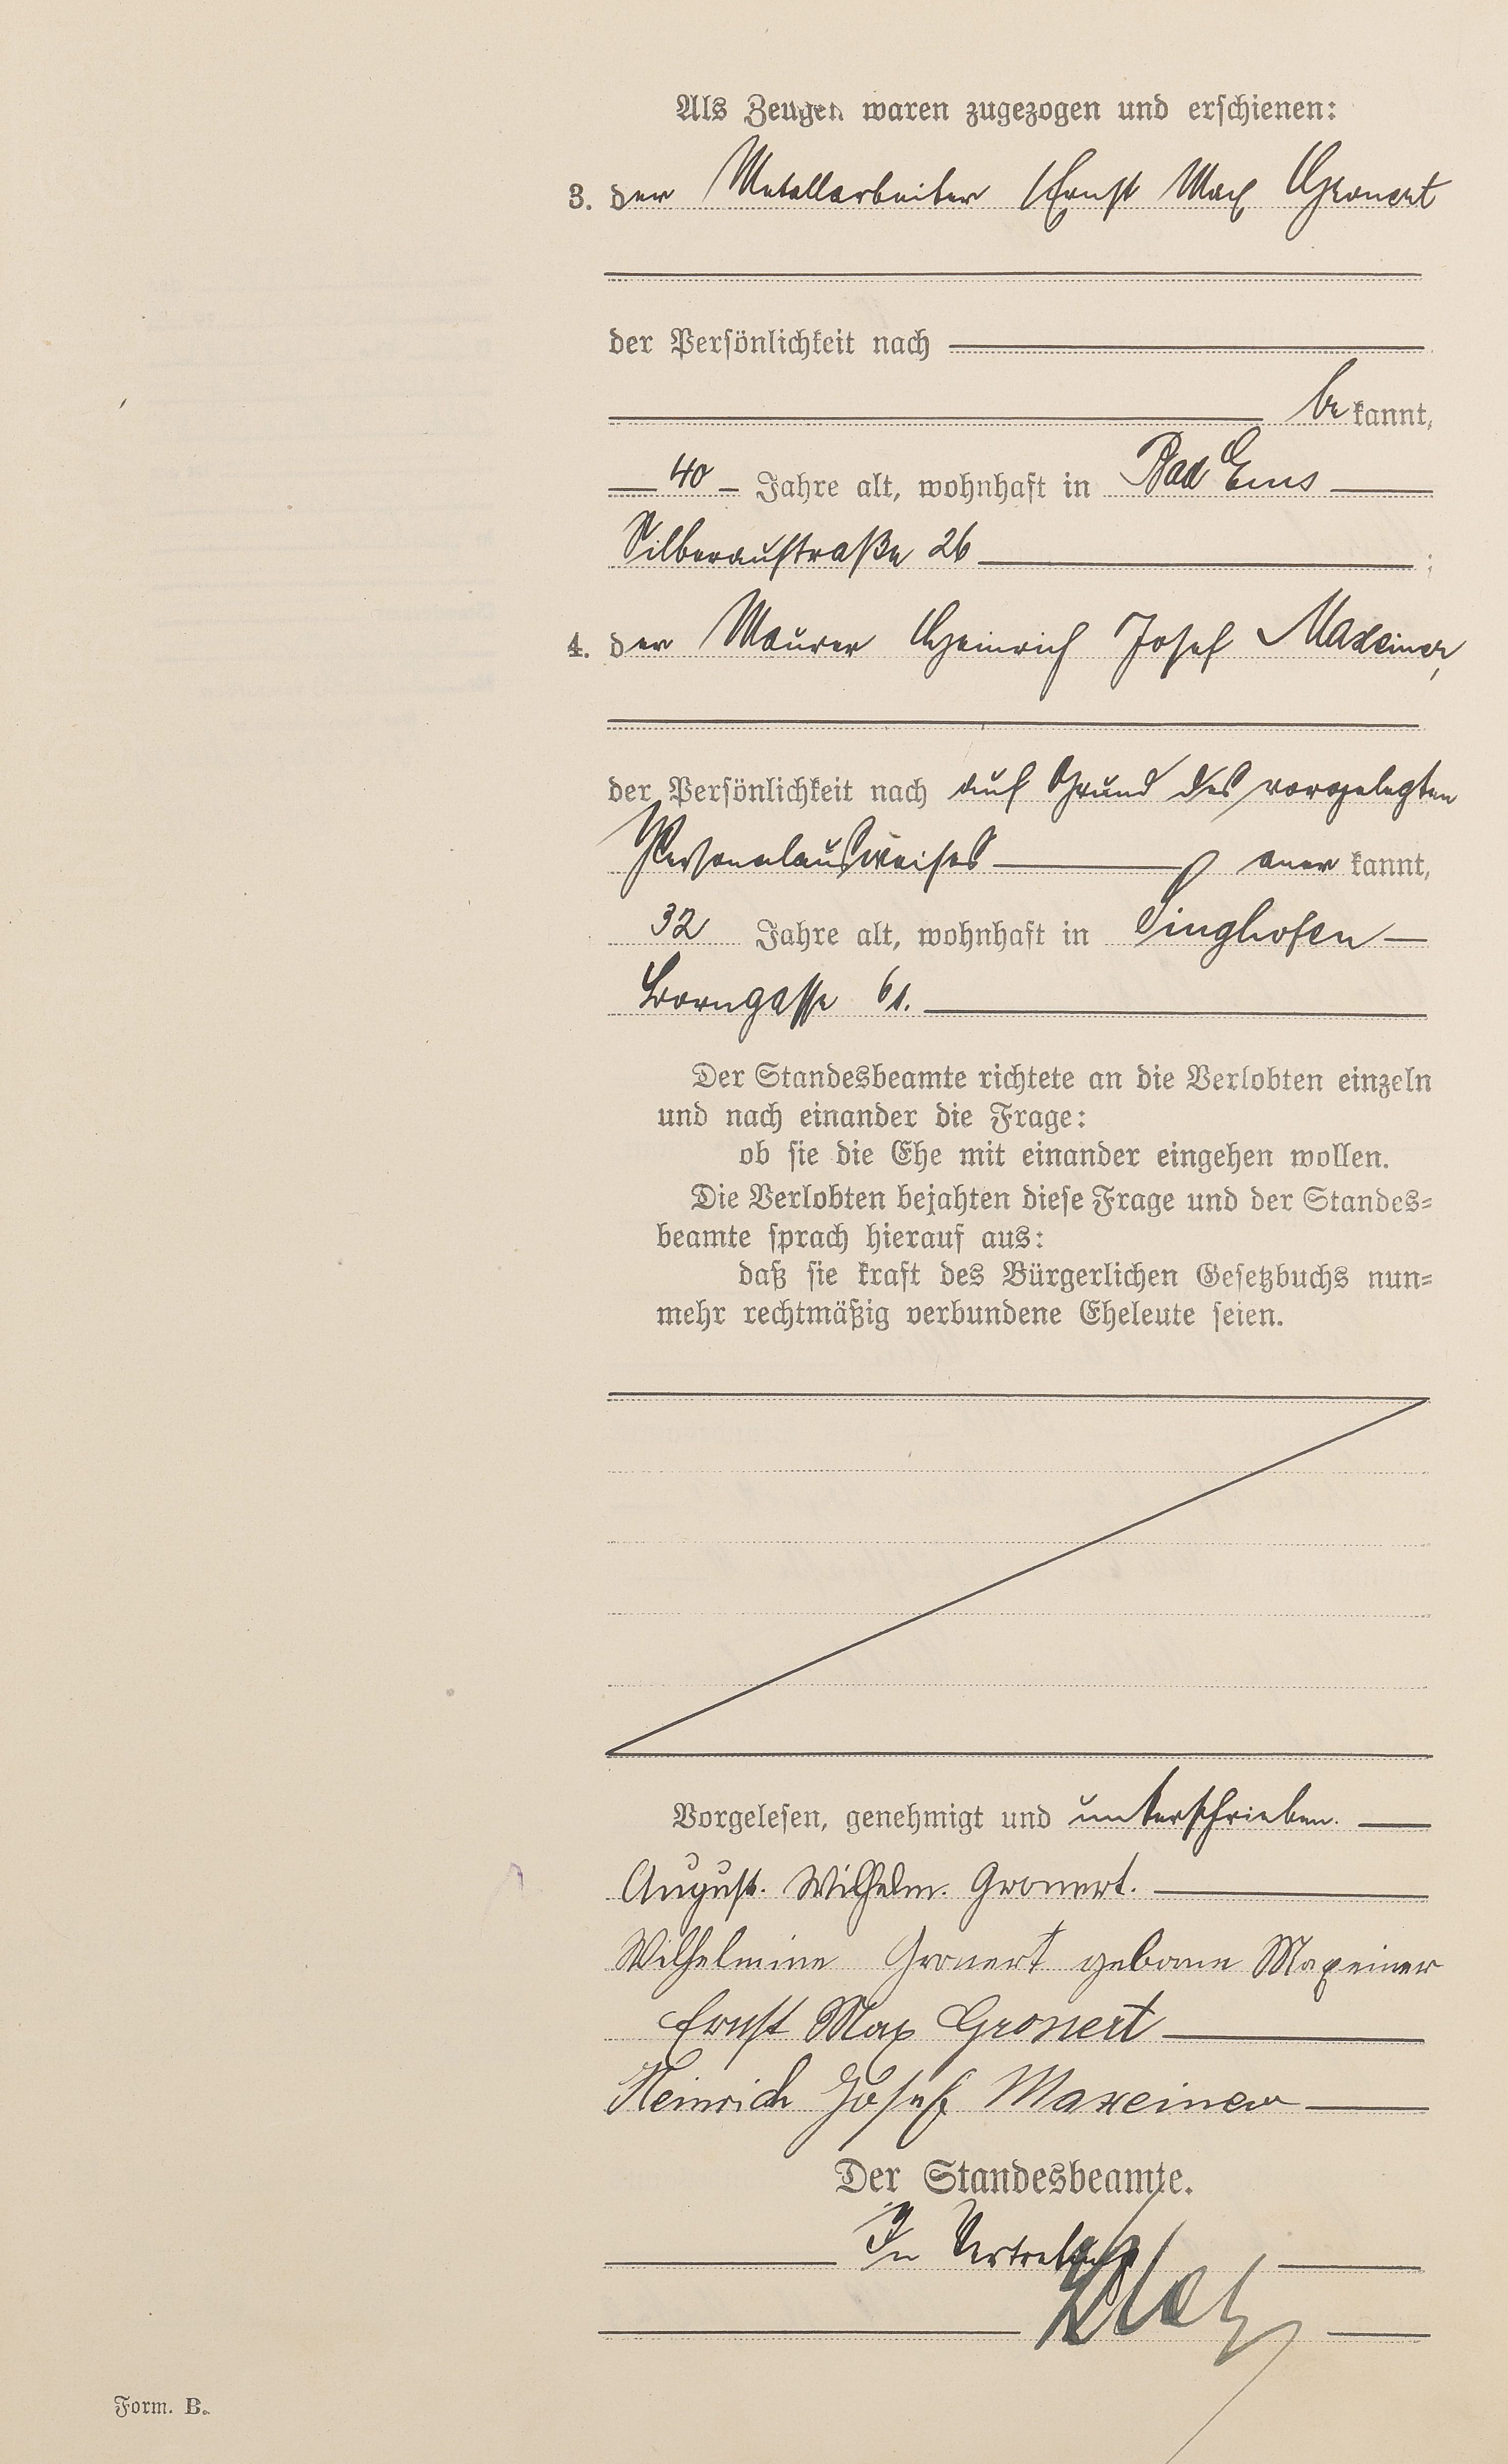 Als Zeugen waren zugezogen und erschienen:
3. der Metallarbeiter Ernst Max Gronert
der Persönlichkeit nach
be kannt,
40 Jahre alt, wohnhaft in Bad Ems
Silberaustraße 26 ;
4. der Maurer Heinrich Josef Maxeiner,
der Persönlichkeit nach auf Grund des vorgelegten
Personalausweises aner kannt,
32 Jahre alt, wohnhaft in Singhofen
Borngasse 61.
Der Standesbeamte richtete an die Verlobten einzeln
und nach einander die Frage:
ob sie die Ehe mit einander eingehen wollen.
Die Verlobten bejahten diese Frage und der Standes-
beamte sprach hierauf aus:
daß sie kraft des Bürgerlichen Gesetzbuchs nun-
mehr rechtmäßig verbundene Eheleute seien.
Vorgelesen, genehmigt und unterschrieben.
August. Wilhelm. Gronert.
Wilhelmine Gronert geborne Maxeiner
Ernst Max Gronert
Heinrich Josef Maxeiner
Der Standesbeamte.
In Vertretung
Form. B.